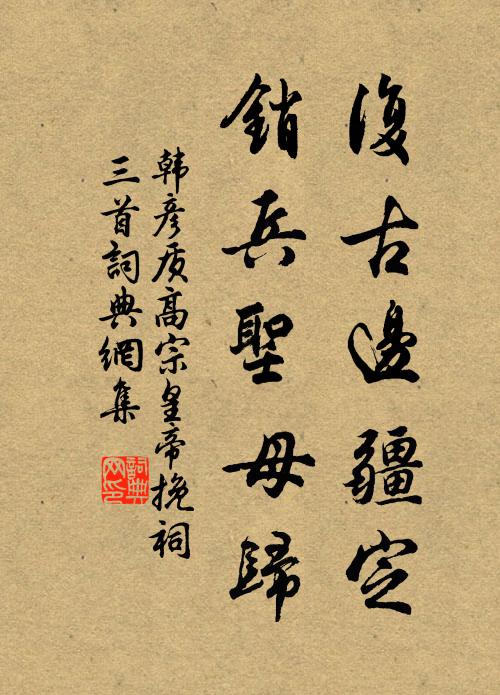 復古邊疆定
銷兵聖母歸
韩彦质高宗皇帝挽祠
三首詞典網集
詞典网印